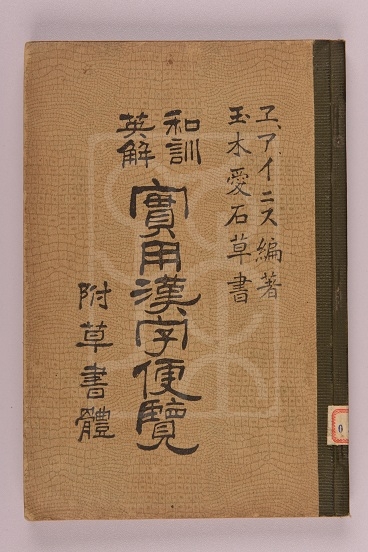 エ、アイニス編著
玉木愛石草書
和訓
英解
實用漢字便覽
附草書體
0